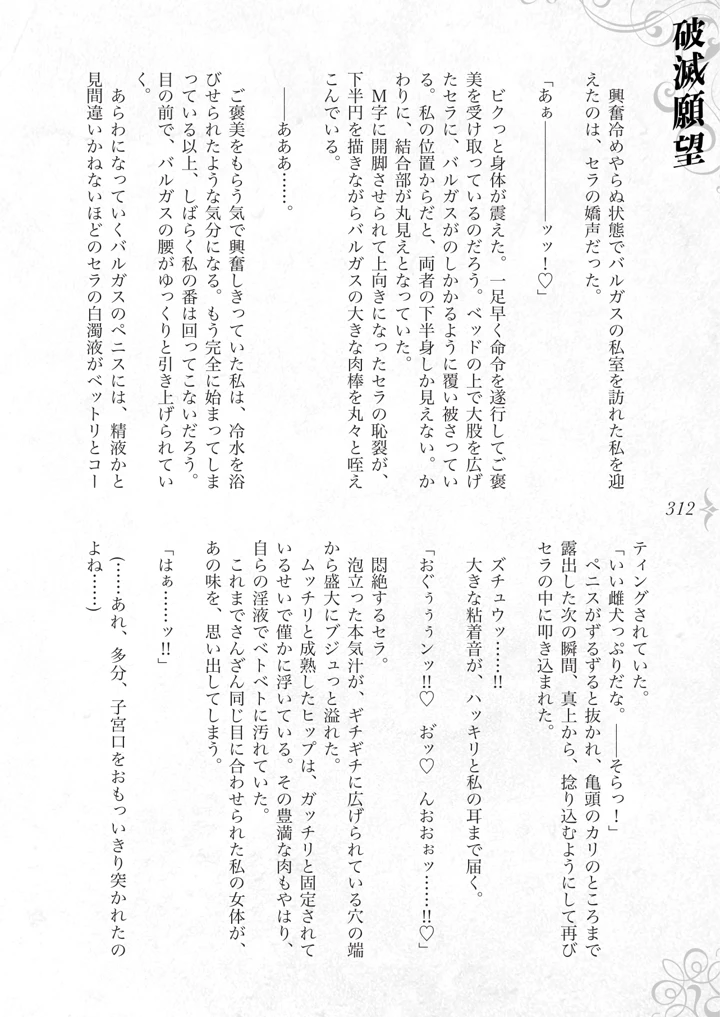 破滅願望
興奮冷めやらぬ状態でバルガスの私室を訪れた私を迎
えたのは、セラの嬌声だった。
「あぁ――――――ッッ！♡」
ビクっと身体が震えた。一足早く命令を遂行してご褒
美を受け取っているのだろう。ベッドの上で大股を広げ
たセラに、バルガスがのしかかるように覆い被さってい
る。私の位置からだと、両者の下半身しか見えない。か
わりに、結合部が丸見えとなっていた。
M字に開脚させられて上向きになったセラの恥裂が、
下半円を描きながらバルガスの大きな肉棒を丸々と咥え
こんでいる。
――あああ……。
ご褒美をもらう気で興奮しきっていた私は、冷水を浴
びせられたような気分になる。もう完全に始まってしま
っている以上、しばらく私の番は回ってこないだろう。
目の前で、バルガスの腰がゆっくりと引き上げられてい
く。
あらわになっていくバルガスのペニスには、精液かと
見間違いかねないほどのセラの白濁液がベットリとコー
312
ティングされていた。
「いい雌犬っぷりだな。――そらっ！」
ペニスがずるずると抜かれ、亀頭のカリのところまで
露出した次の瞬間、真上から、捻り込むようにして再び
セラの中に叩き込まれた。
ズチュウッ……!!
大きな粘着音が、ハッキリと私の耳まで届く。
「おぐぅぅぅンッ!!♡　お゛ッ♡　んおおぉッ……!!♡」
悶絶するセラ。
泡立った本気汁が、ギチギチに広げられている穴の端
から盛大にブジュっと溢れた。
ムッチリと成熟したヒップは、ガッチリと固定されて
いるせいで僅かに浮いている。その豊満な肉もやはり、
自らの淫液でベトベトに汚れていた。
これまでさんざん同じ目に合わせられた私の女体が、
あの味を、思い出してしまう。
「はぁ……ッ!!」
(……あれ、多分、子宮口をおもっいきり突かれたの
よね……)